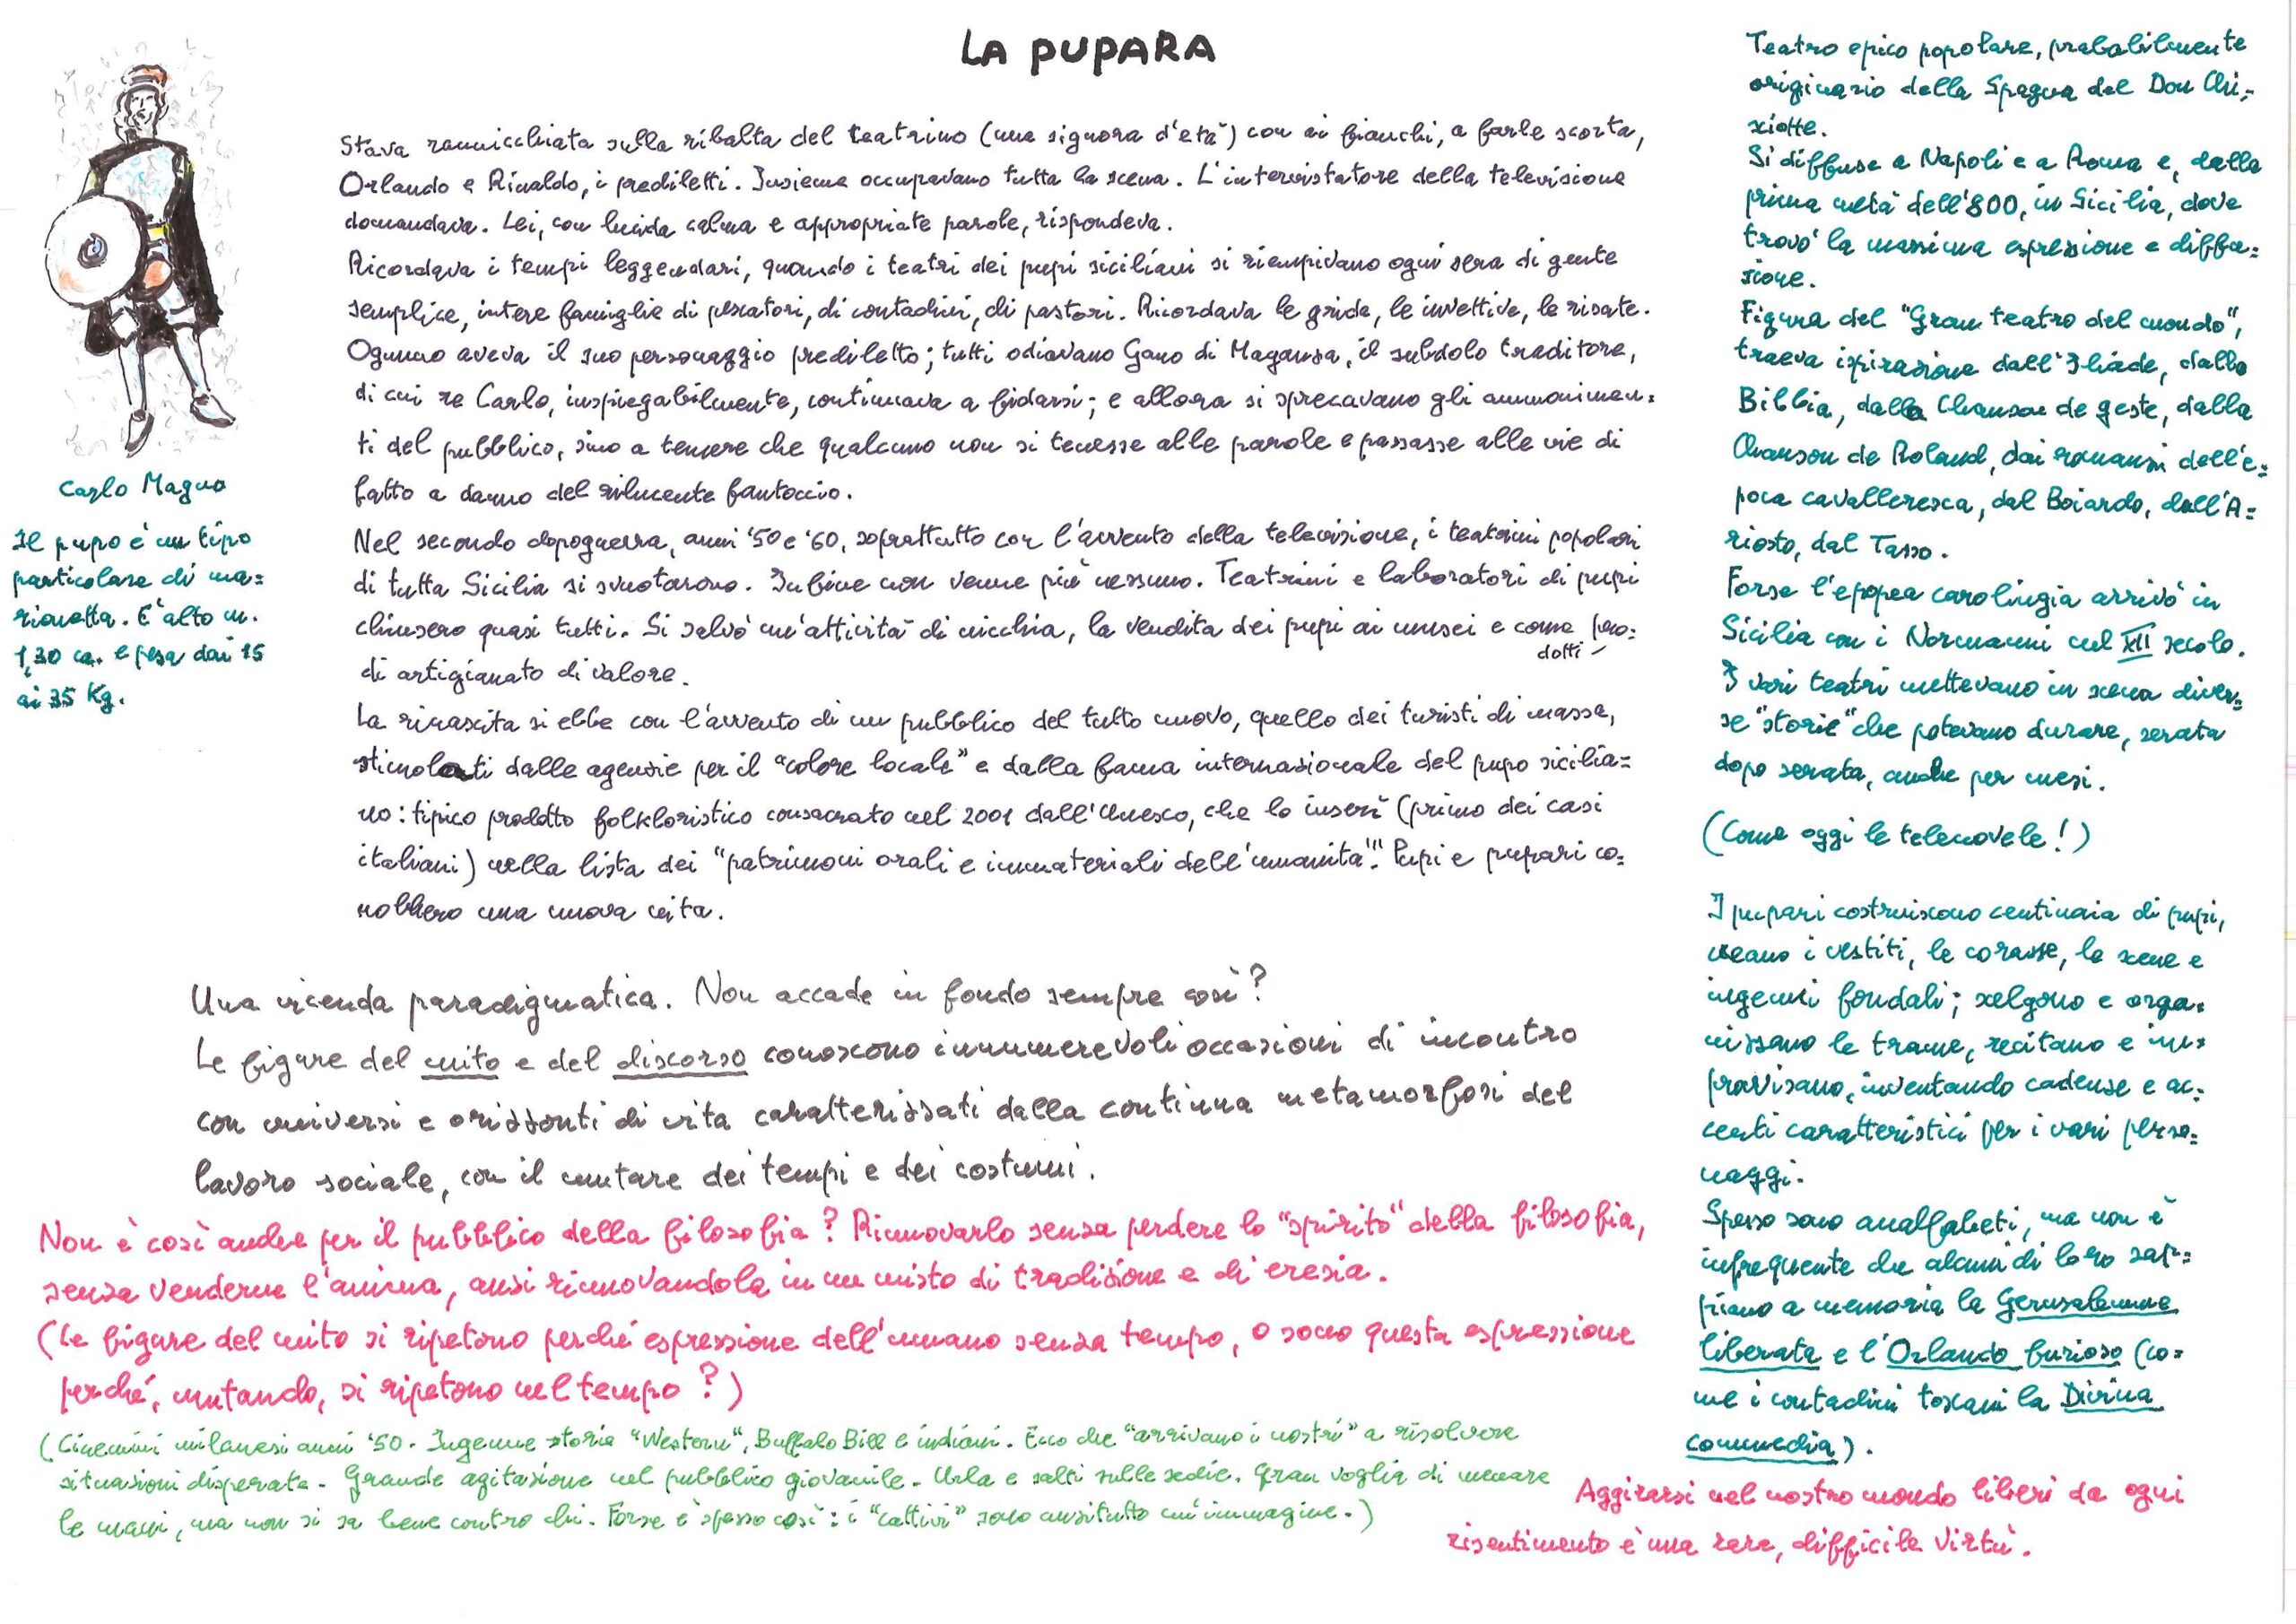 LA PUPARA
Stava rannicchiata sulla ribalta del teatrino (una signora d'età) con ai fianchi, a farle scorta,
Orlando e Rinaldo, i prediletti. Insieme occupavano tutta la scena. L'intervistatore della televisione
domandava. Lei, con lucida calma e appropriate parole, rispondeva.
Ricordava i tempi leggendari, quando i teatri dei pupi siciliani si riempivano ogni sera di gente
semplice, intere famiglie di pescatori, di contadini, di pastori. Ricordava le grida, le invettive, le risate.
Ognuno aveva il suo personaggio prediletto; tutti odiavano Gano di Maganza, il subdolo traditore,
di cui re Carlo, inspiegabilmente, continuava a fidarsi; e allora si sprecavano gli ammonimen=
ti del pubblico, sino a temere che qualcuno non si tenesse alle parole e passasse alle vie di
fatto a danno del rilucente fantoccio.
Nel secondo dopoguerra, anni '50 e '60, soprattutto con l'avvento della televisione, i teatrini popolari
di tutta Sicilia si svuotarono. Infine non venne più nessuno. Teatrini e laboratori di pupi
chiusero quasi tutti. Si salvò un'attività di nicchia, la vendita dei pupi ai musei e come pro=
dotti
di artigianato di valore.
La rinascita si ebbe con l'avvento di un pubblico del tutto nuovo, quello dei turisti di massa,
stimolati dalle agenzie per il "colore locale" e dalla fama internazionale del pupo sicilia=
no: tipico prodotto folkloristico consacrato nel 2001 dall'Unesco, che lo inserì (primo dei casi
italiani) nella lista dei "patrimoni orali e immateriali dell'umanità". Pupi e pupari co=
nobbero una nuova vita.
Una vicenda paradigmatica. Non accade in fondo sempre così?
Le figure del mito e del discorso conoscono innumerevoli occasioni di incontro
con universi e orizzonti di vita caratterizzati dalla continua metamorfosi del
lavoro sociale, con il mutare dei tempi e dei costumi.
Non è così anche per il pubblico della filosofia? Rinnovarlo senza perdere lo "spirito" della filosofia,
senza venderne l'anima, anzi rinnovandola in un misto di tradizione e di eresia.
(Le figure del mito si ripetono perché espressione dell'umano senza tempo, o sono questa espressione
perché, mutando, si ripetono nel tempo?)
(Cinemini milanesi anni '50. Ingenue storie "Western", Buffalo Bill e indiani. Ecco che "arrivano i nostri" a risolvere
situazioni disperate. Grande agitazione nel pubblico giovanile. Urla e salti sulle sedie. Gran voglia di menare
le mani, ma non si sa bene contro chi. Forse è spesso così: i "cattivi" sono anzitutto un'immagine.)
Carlo Magno
Il pupo è un tipo
particolare di ma=
rionetta. È alto m.
1,30 ca. e pesa dai 15
ai 35 Kg.
Teatro epico popolare, probabilmente
originario della Spagna del Don Chi=
sciotte.
Si diffuse a Napoli e a Roma e, dalla
prima metà dell'800, in Sicilia, dove
trovò la massima espressione e diffu=
sione.
Figura del "Gran teatro del mondo",
traeva ispirazione dall'Iliade, dalla
Bibbia, dalla Chanson de geste, dalla
Chanson de Roland, dai romanzi dell'e=
poca cavalleresca, dal Boiardo, dall'A=
riosto, dal Tasso.
Forse l'epopea carolingia arrivò in
Sicilia con i Normanni nel XII secolo.
I vari teatri mettevano in scena diver=
se "storie" che potevano durare, serata
dopo serata, anche per mesi.
(Come oggi le telenovele!)
I pupari costruiscono centinaia di pupi,
creano i vestiti, le corazze, le scene e
ingenui fondali; scelgono e orga=
nizzano le trame, recitano e im=
provvisano, inventando cadenze e ac=
centi caratteristici per i vari perso=
naggi.
Spesso sono analfabeti, ma non è
infrequente che alcuni di loro sap=
piano a memoria la Gerusalemme
liberata e l'Orlando furioso (co=
me i contadini toscani la Divina
commedia).
Aggirarsi nel nostro mondo liberi da ogni
risentimento è una rara, difficile virtù.